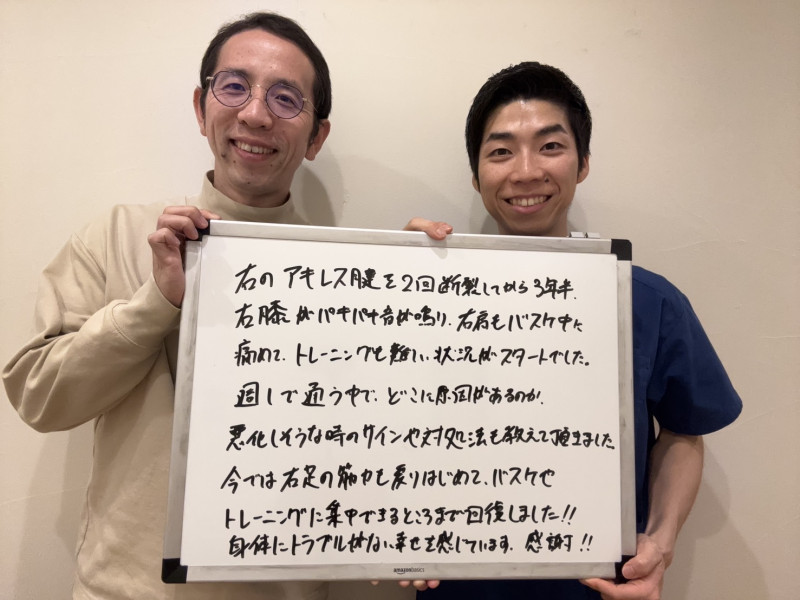 右のアキレス腱を2回断裂してから3年半、
右膝がパキパキ音が鳴り、右肩もバスケ中に
痛めて、トレーニングも難しい状況がスタートでした。
週1で通う中で、どこに原因があるのか、
悪化しそうな時のサインや対処法も教えて頂きました
今では右足の筋力も戻りはじめて、バスケや
トレーニングに集中できるところまで回復しました!!
身体にトラブルがない幸せを感じています。感謝!!
amazonbasics